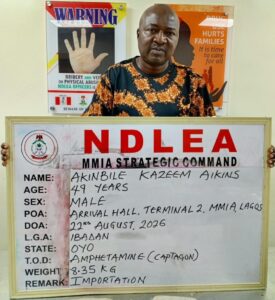 WARNING
HURTS
FAMILIES
It is time
to care
for all
NDLEA
MMIA STRATEGIC COMMAND
NAME: AKINBILE KAZEEM AIKINS
AGE: 49 YEARS
SEX: MALE
POA: ARRIVAL HALL, TERMINAL 2, MMIA, LAGOS
DOA: 22ND AUGUST, 2026
L.G.A: IBADAN
STATE: OYO
T.O.D: AMPHETAMINE (CAPTAGON)
WEIGHT: 8.35 KG
REMARK: IMPORTATION